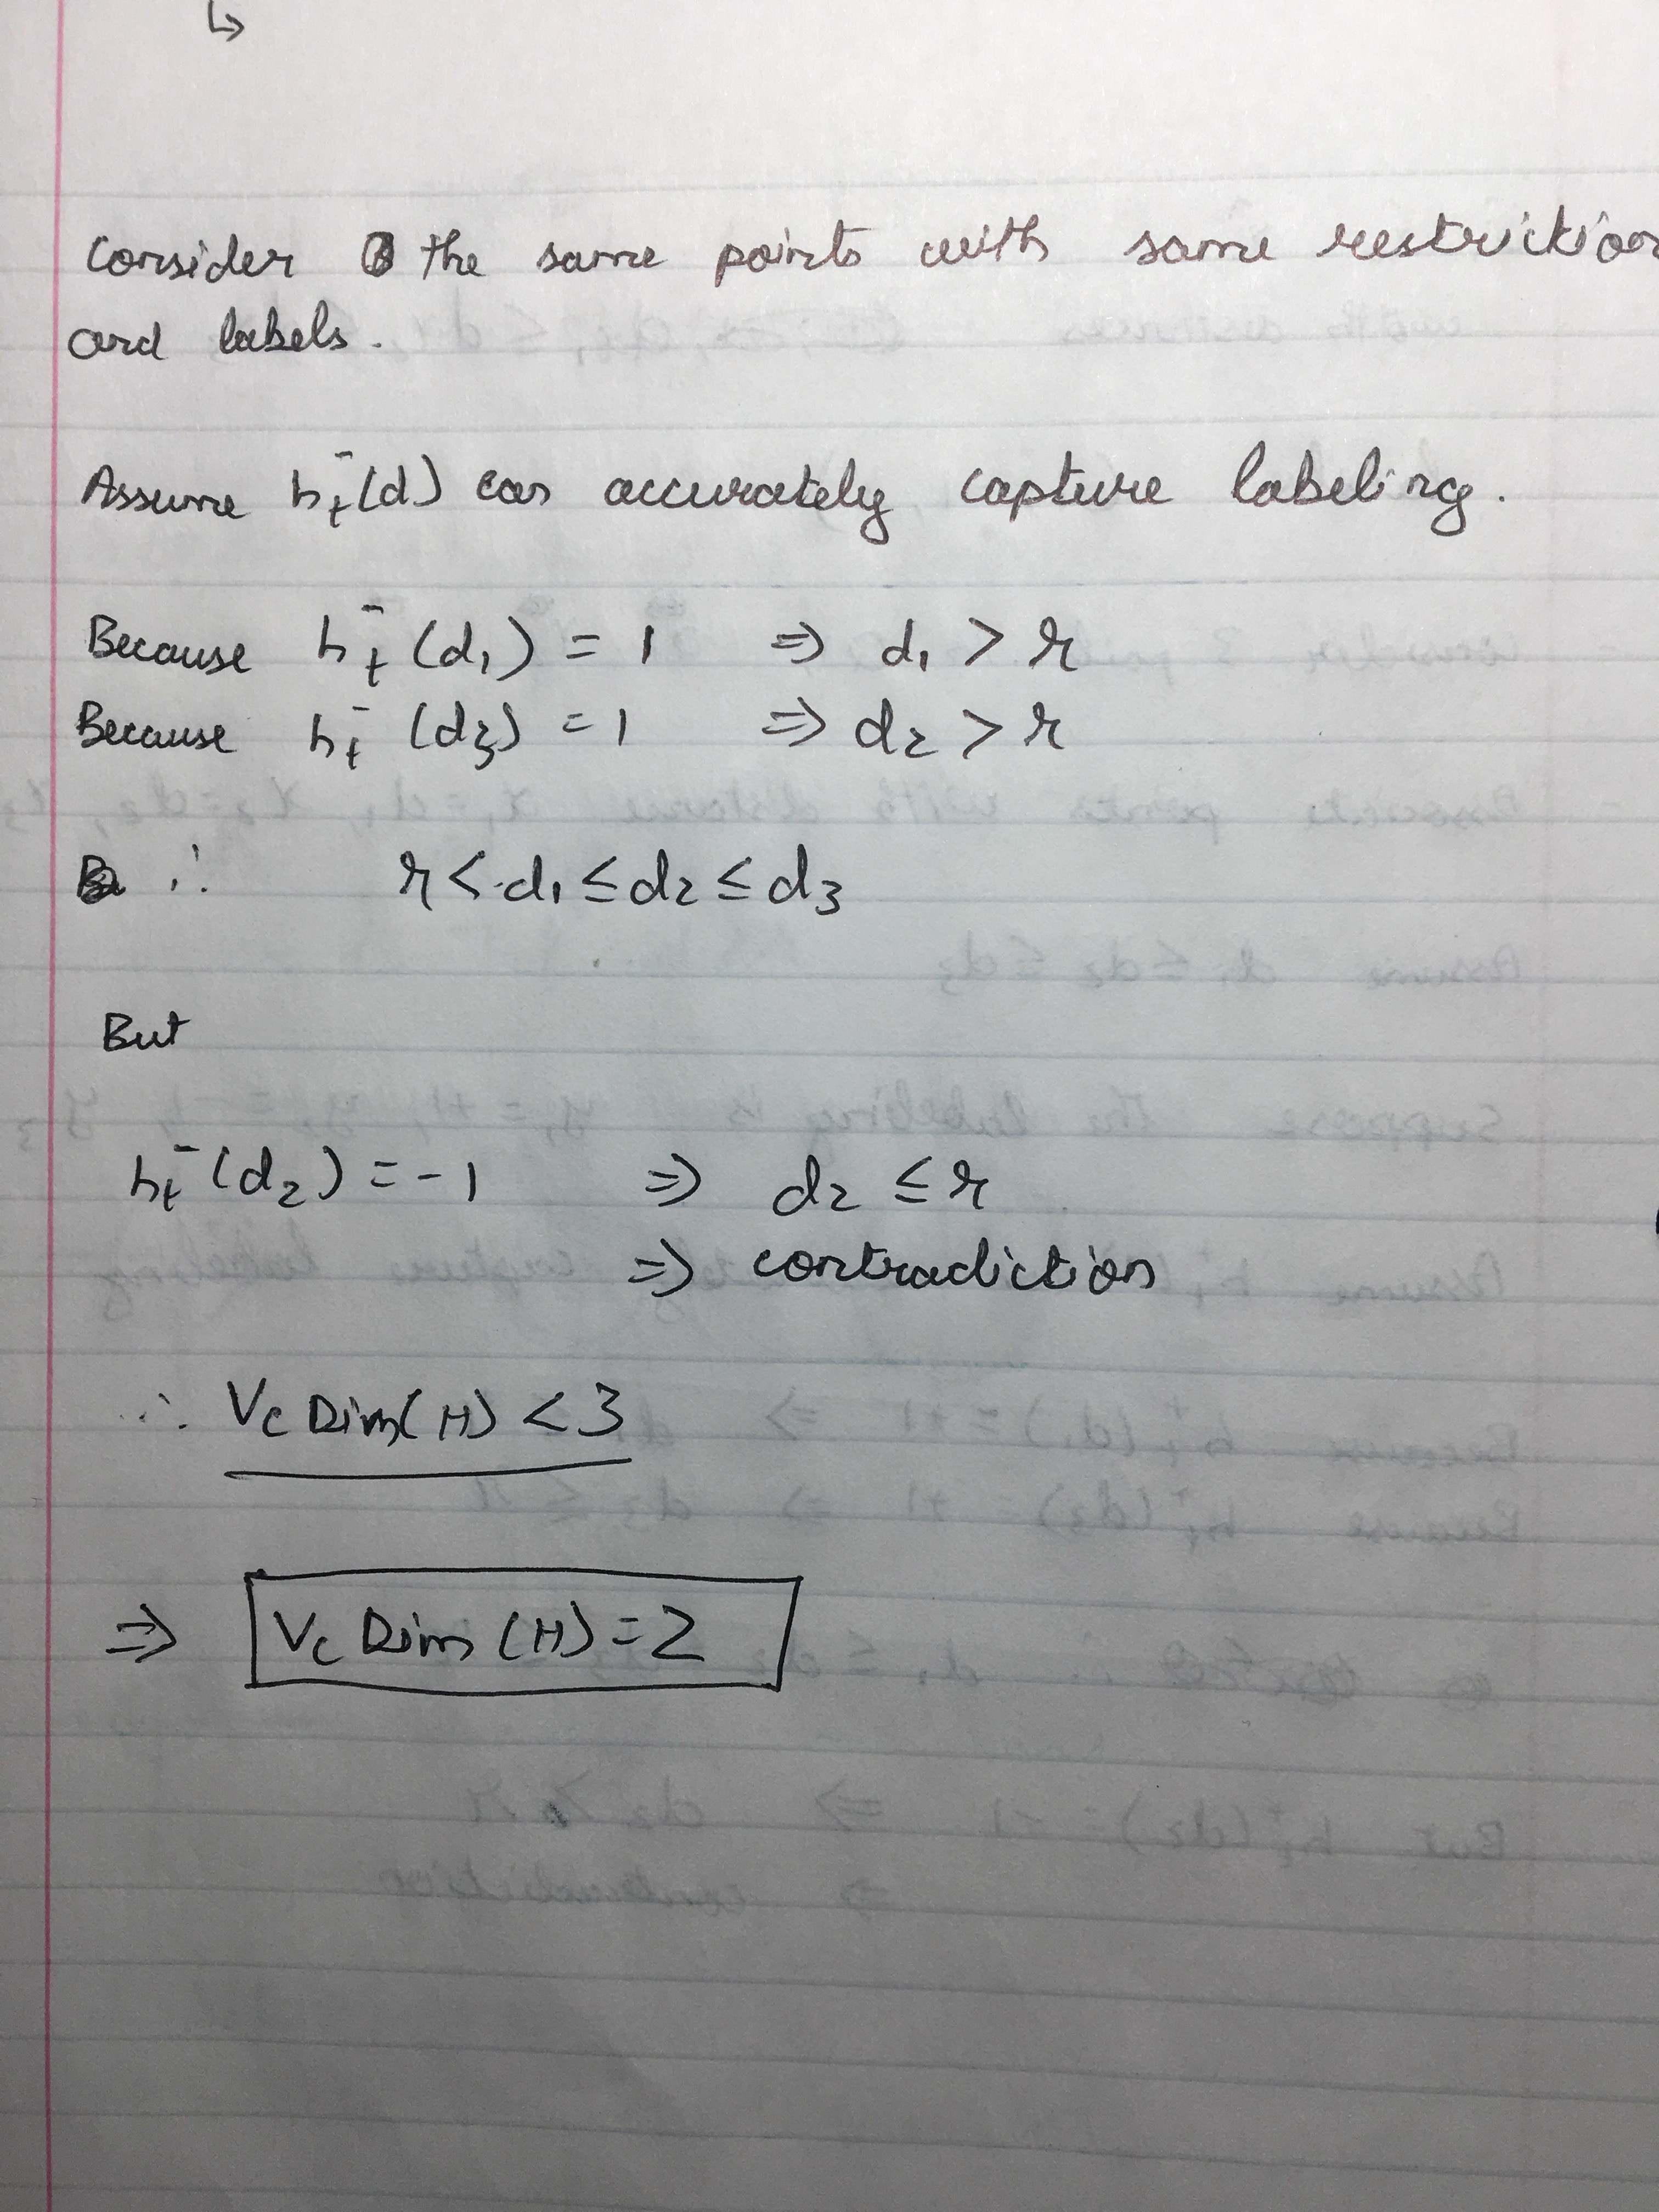 ↳
Consider the same points with same restriction
and labels.
Assume h_t^-(d) can accurately capture labeling.
Because h_t^-(d_1) = 1 ⇒ d_1 > r
Because h_t^-(d_3) = 1 ⇒ d_2 > r
∴ r < d_1 ≤ d_2 ≤ d_3
But
h_t^-(d_2) = -1 ⇒ d_2 ≤ r
⇒ contradiction
∴ VC Dim(H) < 3
⇒ VC Dim(H) = 2